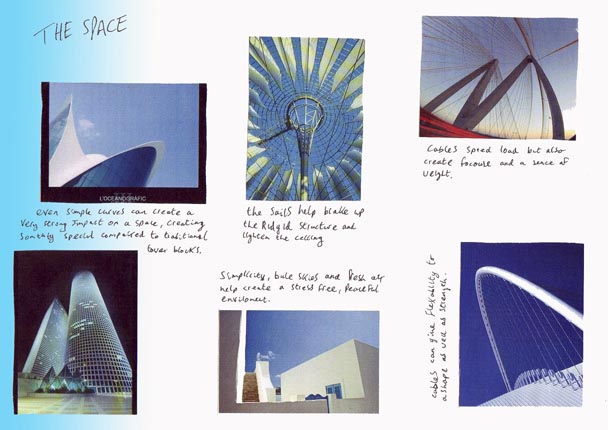 THE SPACE
L'OCEANOGRÀFIC
even simple curves can create a
very strong impact on a space, creating
somthly special compaired to traditional
tower blocks.
the sails help brake up
the Ridgid structure and
lighten the celling
Cables spead load but also
create focouse and a sence of
weight.
Simplicity, bule skies and fresh air
help create a stress free, peaceful
enviroment.
cables can give flexability to
a shape as well as strength.